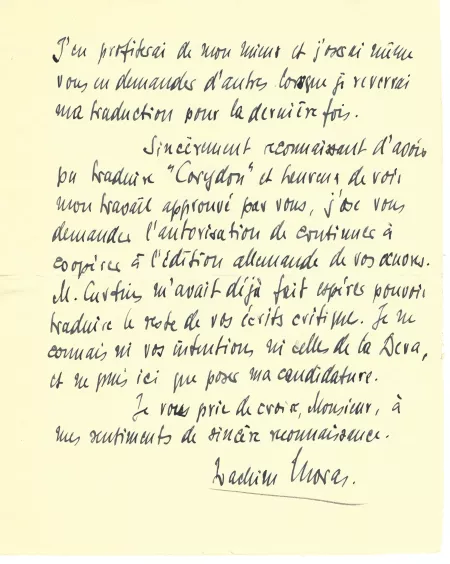 J'en profiterai de mon mieux et j'oserai même
vous en demander d'autres lorsque je reverrai
ma traduction pour la dernière fois.
Sincèrement reconnaissant d'avoir
pu traduire "Corydon" et heureux de voir
mon travail approuvé par vous, j'ose vous
demander l'autorisation de continuer à
coopérer à l'édition allemande de vos œuvres.
M. Curtius m'avait déjà fait espérer pouvoir
traduire le reste de vos écrits critique. Je ne
connais ni vos intentions ni celles de la Deva,
et ne puis ici que poser ma candidature.
Je vous prie de croire, Monsieur, à
mes sentiments de sincère reconnaissance.
Joachim Moras.